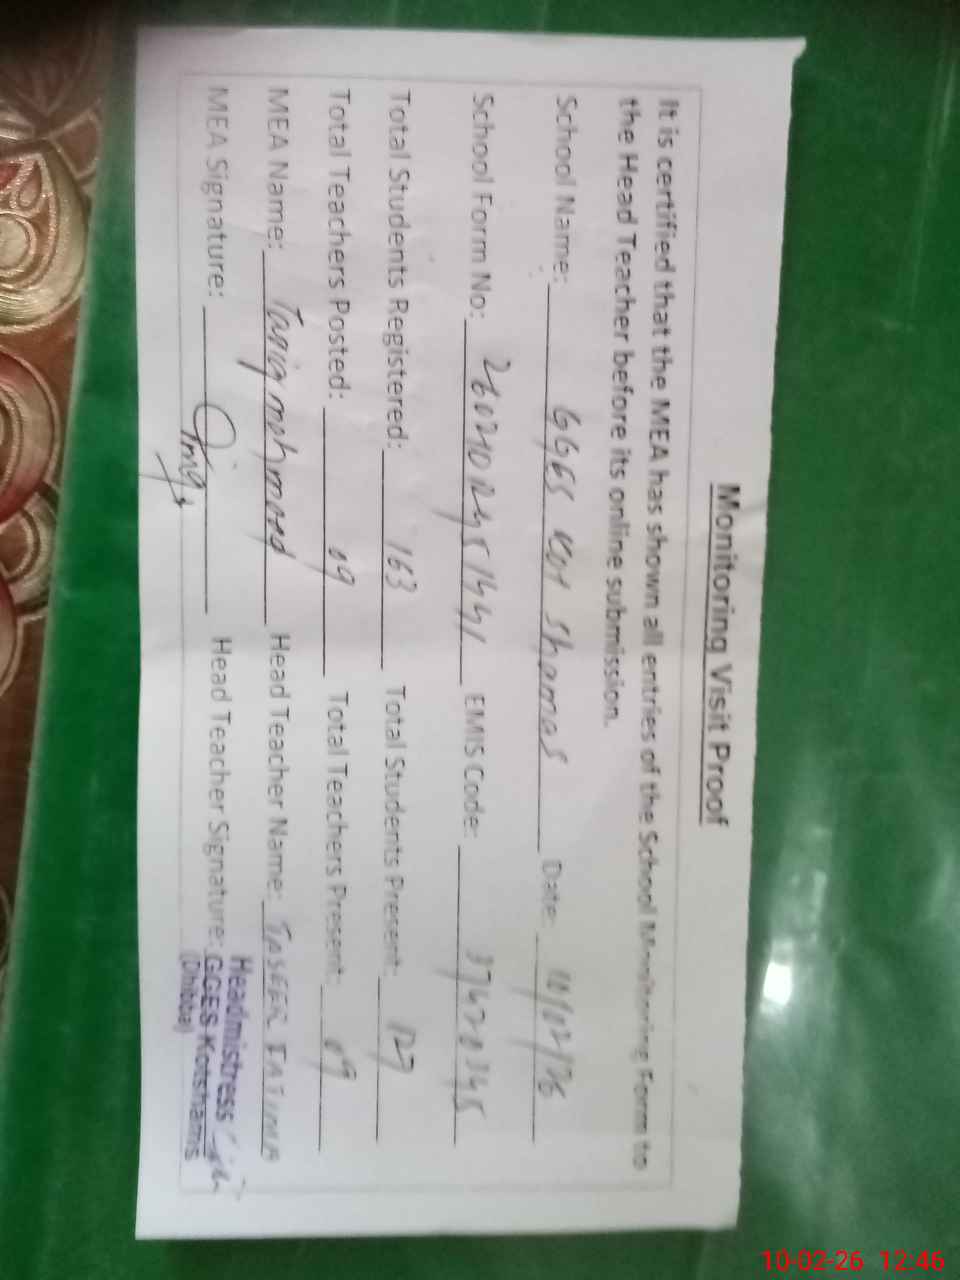 Monitoring Visit Proof
It is certified that the MEA has shown all entries of the School Monitoring Form to
the Head Teacher before its online submission.
School Name: GGES Kot Shamas Date: 10/02/26
School Form No: EMIS Code:
Total Students Registered: 163 Total Students Present: 127
Total Teachers Posted: 09 Total Teachers Present: 09
MEA Name: Tariq mahmood Head Teacher Name: FATIMA
MEA Signature: Head Teacher Signature:
Headmistress
GGES Kotshams
(Dhibba)
10-02-26 12:46